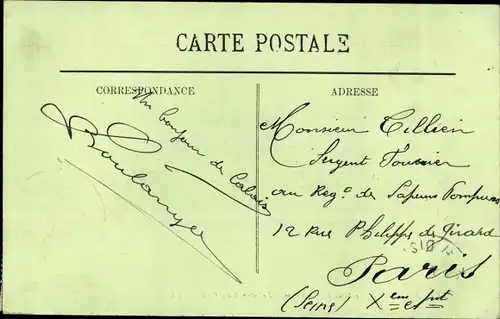 CARTE POSTALE
CORRESPONDANCE
ADRESSE
Un bonjour de Calais
Boulanger
Monsieur Tillien
Sergent Fourrier
au Reg.t de Sapeurs Pompiers
12 Rue Philippe de Girard
Paris
(Seine) Xem